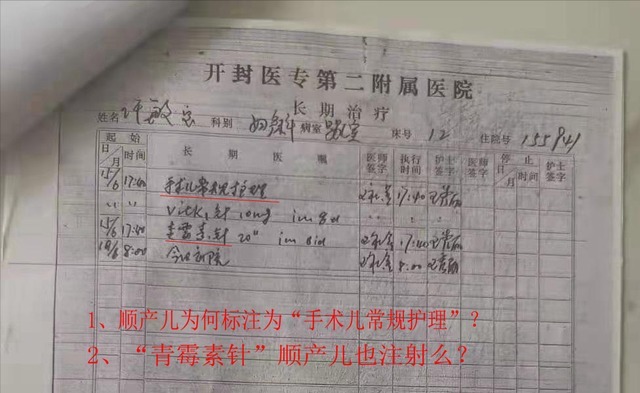 开封医专第二附属医院
长期治疗
姓名 许敏之 科别 妇产科 病室 床号 12 住院号 155941
起始 长期医嘱 医师签字 执行时间 护士签字 医师签字 停止 护士签字
日/月 时间 日/月 时间
15/6 17:40 手术儿常规护理 17:40
〃 〃 Vitk1针 10mg im qd
15/6 17:40 青霉素针 20" im bid 17:40
18/6 8:00 今日出院 8:00
1、顺产儿为何标注为“手术儿常规护理”？
2、“青霉素针”顺产儿也注射么？